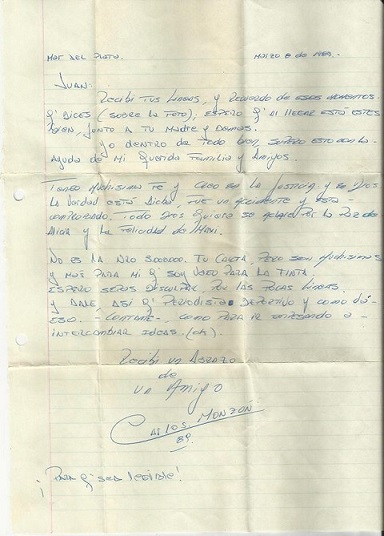 Mar del Plata. Marzo 8 de 1989.
Juan:
Recibí tus líneas, y recuerdo de esos momentos
q' dices (sobre la foto), espero q' al llegar esta estés
bien, junto a tu madre y demás.
Yo dentro de todo bien, señero esto con la
ayuda de mi querida familia y amigos.
Tengo muchísima fe y creo en la justicia y en Dios
la verdad está dicha, fue un accidente y está
comprobado. Todo Dios quiera se aclare por la paz de
Alicia y la felicidad de Maxi.
No es la Nro 500000. Tu carta, pero son muchísimas
y más para mí q' soy vago para la tinta.
Espero sepas disculpar, por las pocas líneas.
y dale así q' periodista deportivo y como
eso. - Contame - como para ir empezando a
intercambiar ideas. (ok).
Recibí un abrazo
de
un amigo
Carlos Monzón
89.
¡Para q' sea legible!